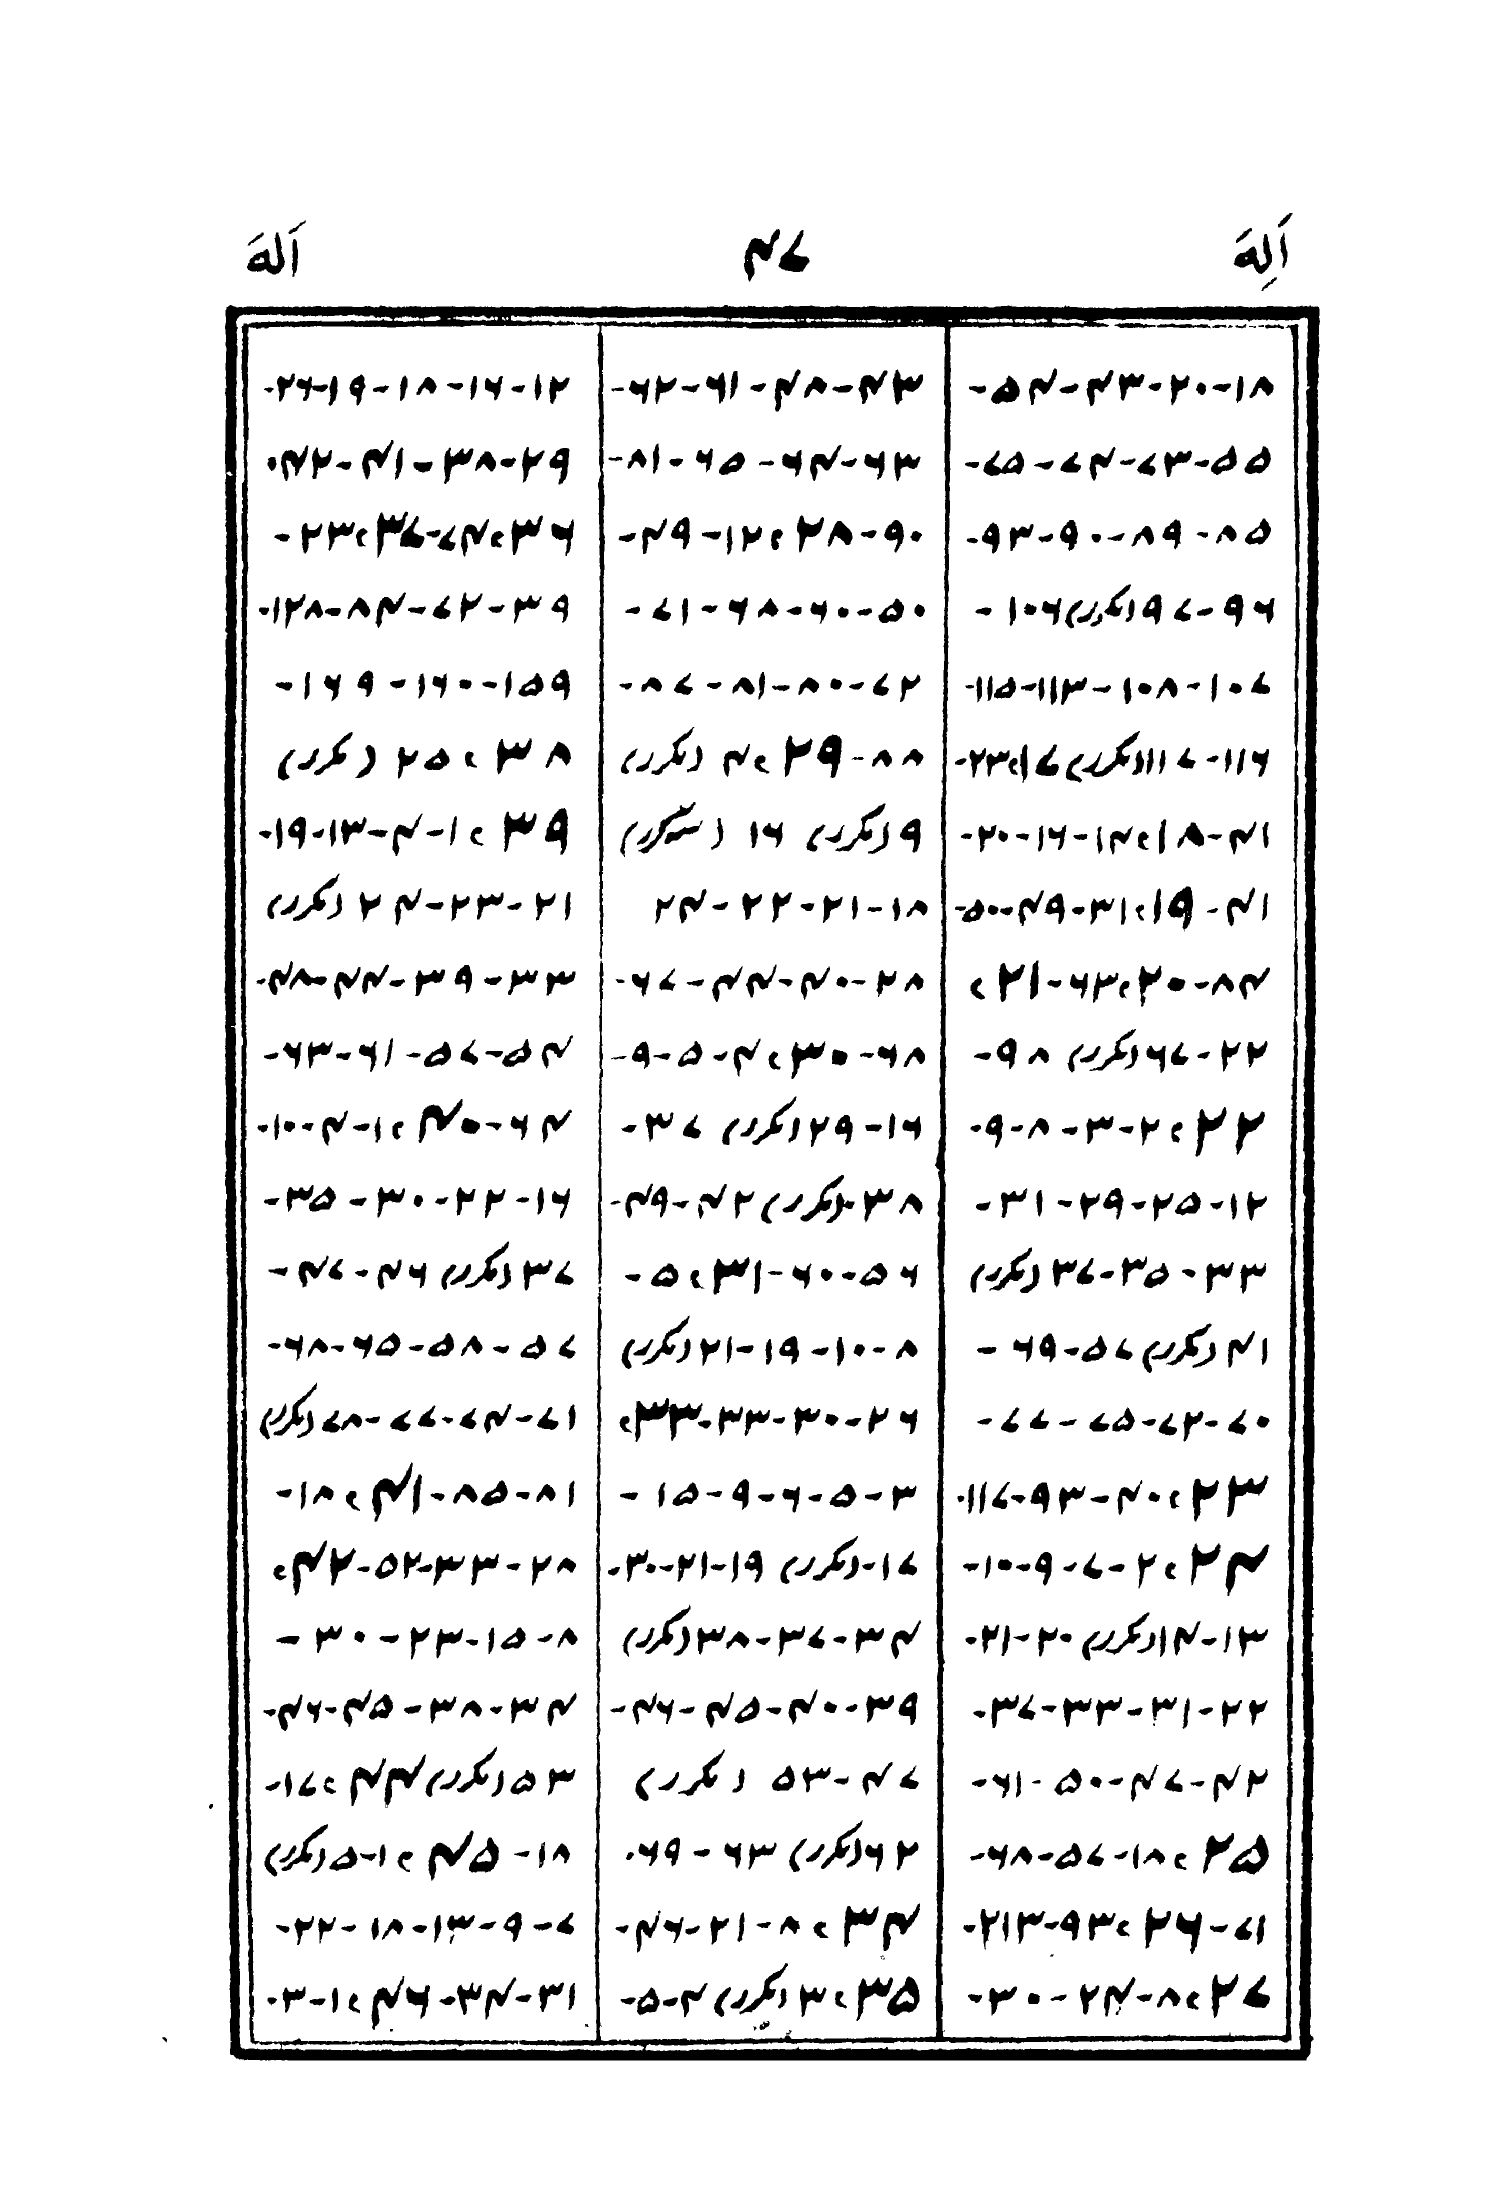 اَلِهَ ۴۷ اَلهَ
۱۸-۲۰-۴۳-۵۴-
۵۵-۷۳-۷۴-۷۵-
۸۵-۸۹-۹۰-۹۳-
۹۶-۹۷(مکرر)۱۰۶-
۱۰۷-۱۰۸-۱۱۳-۱۱۵-
۱۱۶-۱۱۷(مکرر)۱۷؛۲۳-
۴۱-۱۸؛۱۴-۱۶-۲۰-
۴۱-۱۹؛۳۱-۴۹-۵۰-
۴۸-۲۰؛۶۳-۲۱؛
۲۲-۶۷(مکرر) ۹۸-
۲۲؛۲-۳-۸-۹-
۱۲-۲۵-۲۹-۳۱-
۳۳-۳۵-۳۷(مکرر)
۴۱(مکرر)۵۷-۶۹-
۷۰-۷۲-۷۵-۷۷-
۲۳؛۴۰-۹۳-۱۱۷-
۲۴؛۲-۷-۹-۱۰-
۱۳-۱۴(مکرر)۲۰-۲۱-
۲۲-۳۱-۳۳-۳۷-
۴۲-۴۷-۵۰-۶۱-
۲۵؛۱۸-۵۷-۶۸-
۷۱-۲۶؛۹۳-۲۱۳-
۲۷؛۸-۲۴-۳۰-
۴۳-۴۸-۶۱-۶۲-
۶۳-۶۴-۶۵-۸۱-
۹۰-۲۸؛۱۲-۴۹-
۵۰-۶۰-۶۸-۷۱-
۷۲-۸۰-۸۱-۸۷-
۸۸-۲۹؛۴(مکرر)
۹(مکرر) ۱۶ (سہ کرر)
۱۸-۲۱-۲۲-۲۴
۲۸-۴۰-۴۴-۶۷-
۶۸-۳۰؛۴-۵-۹-
۱۶-۲۹(مکرر) ۳۷-
۳۸-(مکرر)۴۲-۴۹-
۵۶-۶۰-۳۱؛۵-
۸-۱۰-۱۹-۲۱(مکرر)
۲۶-۳۰-۳۳-۳۳؛
۳-۵-۶-۹-۱۵-
۱۷-(مکرر) ۱۹-۲۱-۳۰-
۳۴-۳۷-۳۸(مکرر)
۳۹-۴۰-۴۵-۴۶-
۴۷-۵۳ (مکرر)
۶۲(مکرر) ۶۳-۶۹-
۳۴؛۸-۲۱-۴۶-
۳۵؛۳(مکرر)۴-۵-
۱۲-۱۶-۱۸-۱۹-۲۶-
۲۹-۳۸-۴۱-۴۲-
۳۶؛۴۷-۳۷؛۲۳-
۳۹-۷۲-۸۴-۱۲۸-
۱۵۹-۱۶۰-۱۶۹-
۳۸؛۲۵ (مکرر)
۳۹؛۱-۴-۱۳-۱۹-
۲۱-۲۳-۲۴(مکرر)
۳۳-۳۹-۴۴-۴۸-
۵۴-۵۷-۶۱-۶۳-
۶۴-۴۰؛۱-۴-۱۰-
۱۶-۲۲-۳۰-۳۵-
۳۷(مکرر)۴۶-۴۷-
۵۷-۵۸-۶۵-۶۸-
۷۱-۷۴-۷۷-۷۸(مکرر)
۸۱-۸۵-۴۱؛۱۸-
۲۸-۳۳-۵۲-۴۲؛
۸-۱۵-۲۳-۳۰-
۳۴-۳۸-۴۵-۴۶-
۵۳(مکرر)۴۴؛۱۷-
۱۸-۴۵؛۱-۵(مکرر)
۷-۹-۱۳-۱۸-۲۲-
۳۱-۳۴-۴۶؛۱-۳-